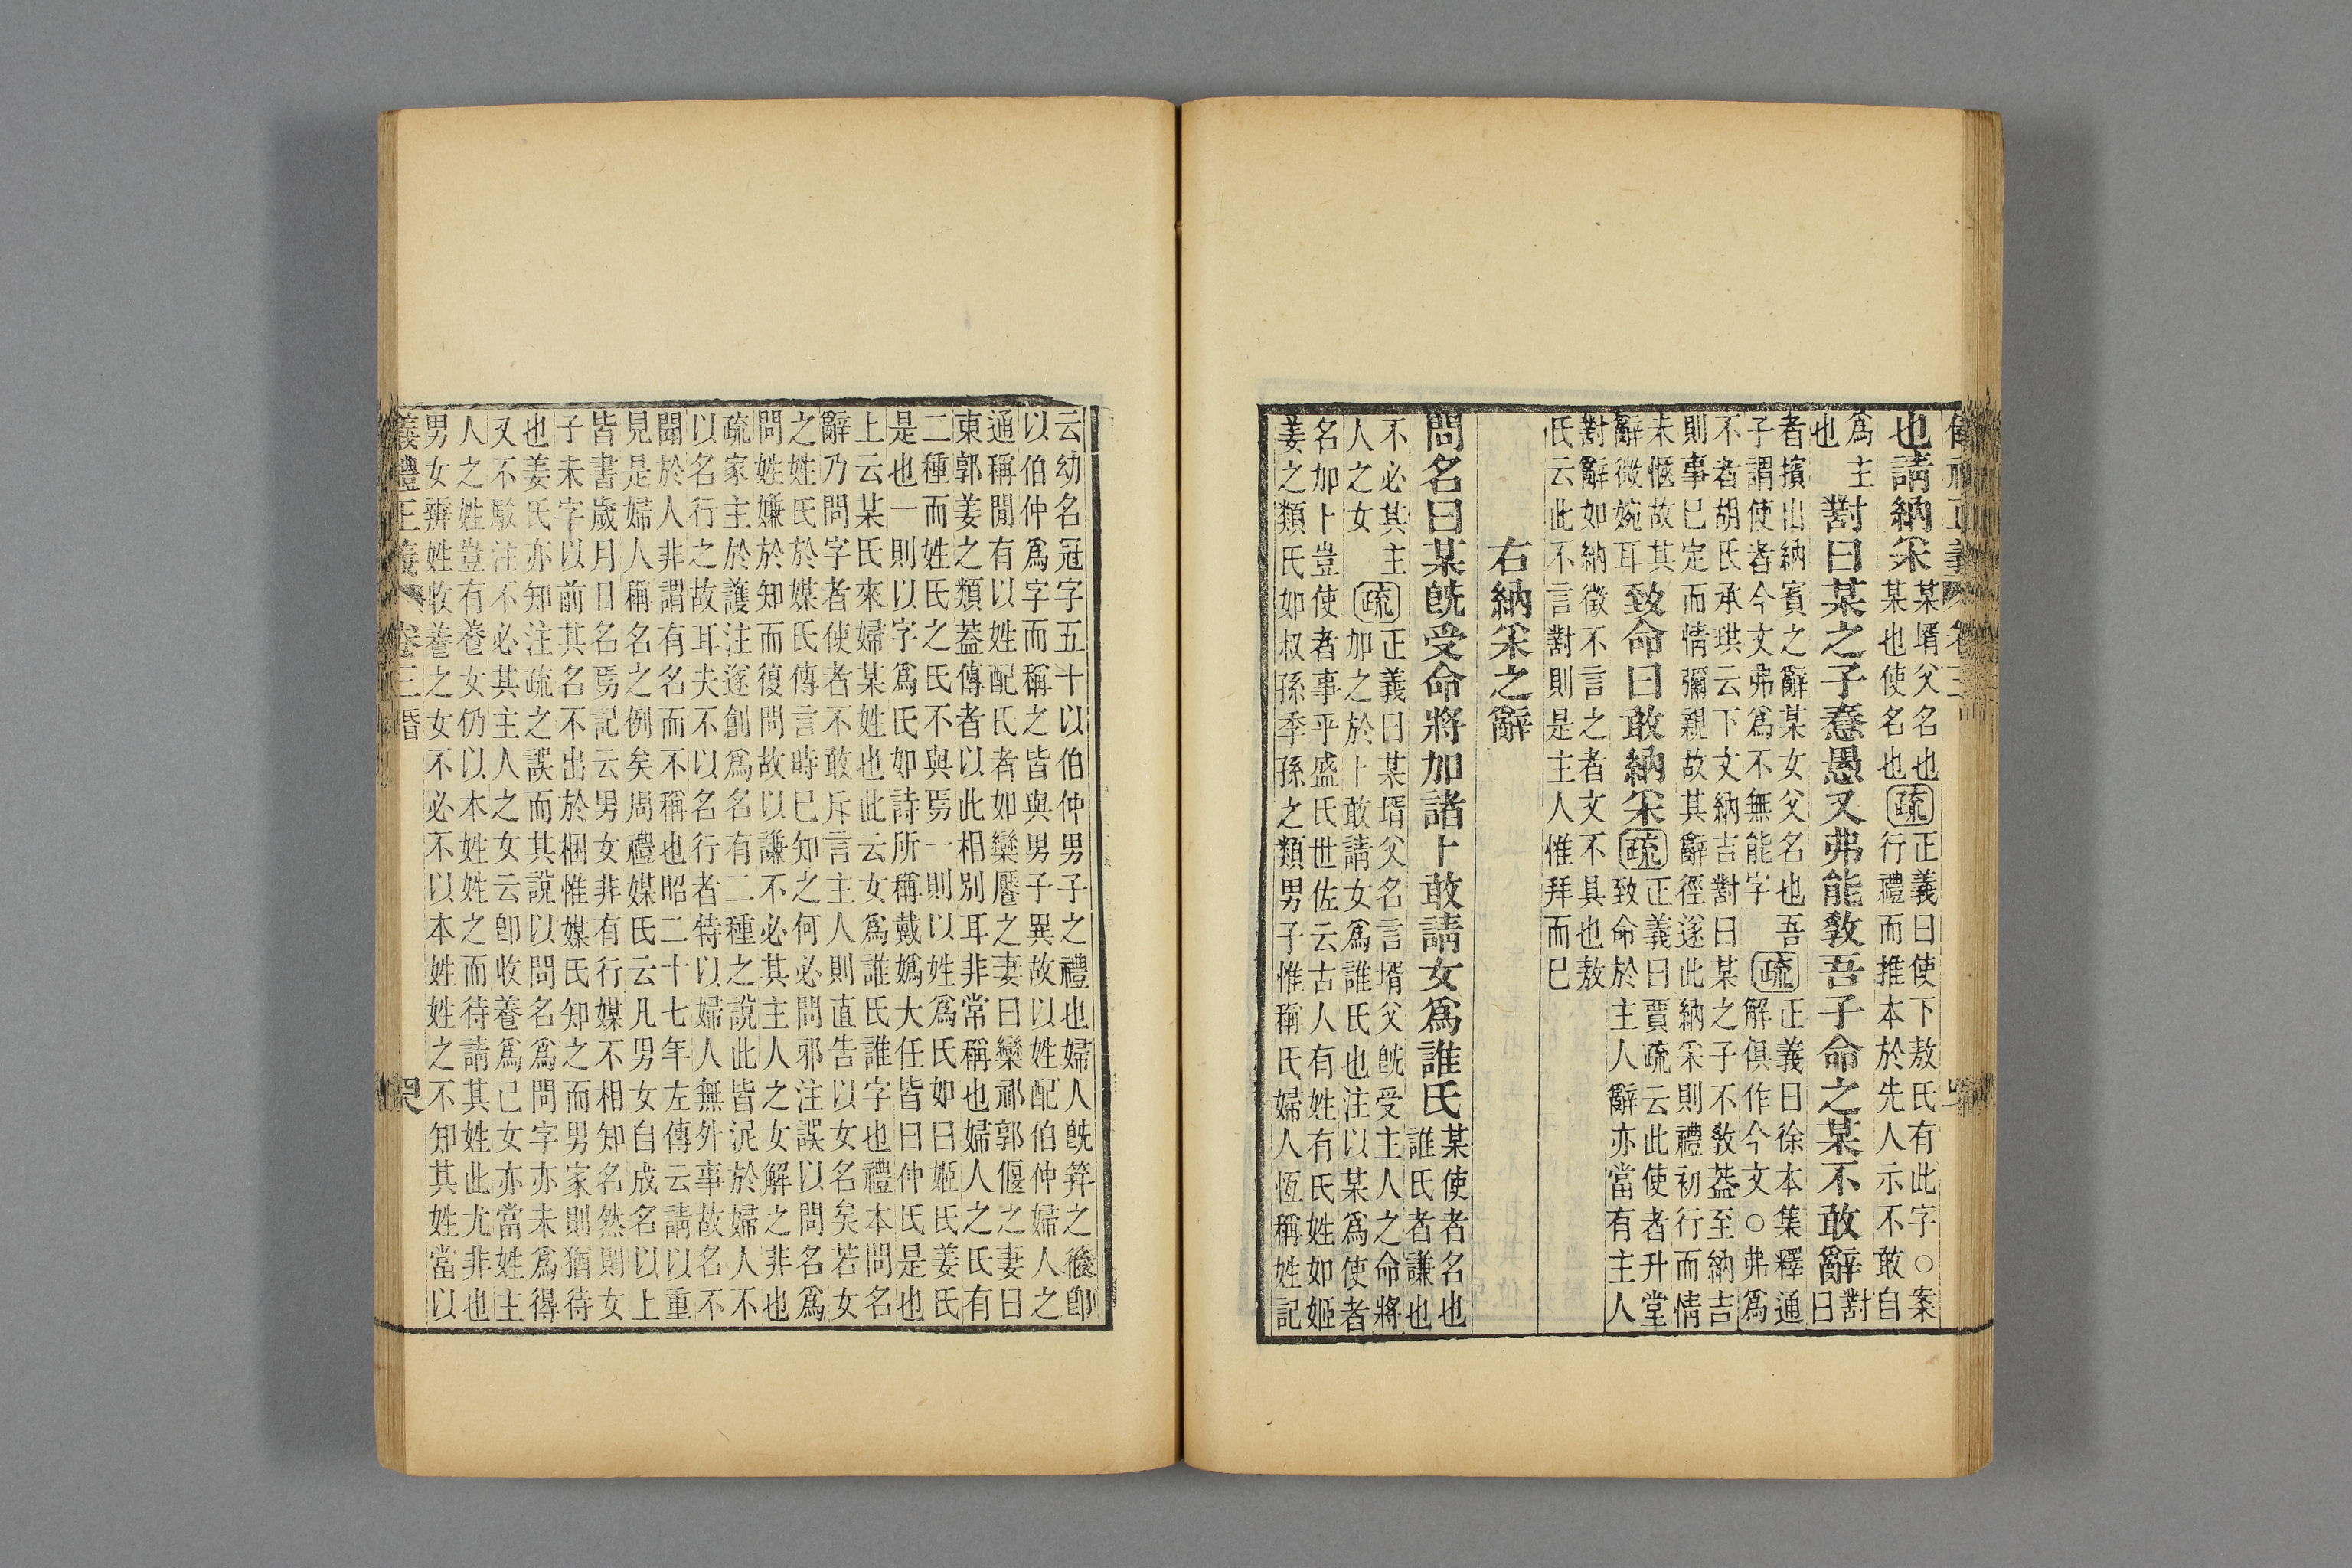 也請納采 某壻父名也
某也使名也 疏 正義曰使下敖氏有此字○案
行禮而推本於先人示不敢自
爲主
也 對曰某之子惷愚又弗能敎吾子命之某不敢辭 對
曰
者擯出納賓之辭某女父名也吾
子謂使者今文弗爲不無能字 疏 正義曰徐本集釋通
解俱作今文○弗爲
不者胡氏承珙云下文納吉對曰某之子不敎蓋至納吉
則事已定而情彌親故其辭徑遂此納采則禮初行而情
未愜故其
辭微婉耳 致命曰敢納采 疏 正義曰賈疏云此使者升堂
致命於主人辭亦當有主人
對辭如納徵不言之者文不具也敖
氏云此不言對則是主人惟拜而已
右納采之辭
問名曰某旣受命將加諸卜敢請女爲誰氏 某使者名也
誰氏者謙也
不必其主
人之女 疏 正義曰某壻父名言壻父旣受主人之命將
加之於卜敢請女爲誰氏也注以某爲使者
名加卜豈使者事乎盛氏世佐云古人有姓有氏姓如姬
姜之類氏如叔孫季孫之類男子惟稱氏婦人恆稱姓記
云幼名冠字五十以伯仲男子之禮也婦人旣筓之後卽
以伯仲爲字而稱之皆與男子異故以姓配伯仲婦人之
通稱閒有以姓配氏者如欒黶之妻曰欒祁郭偃之妻曰
東郭姜之類蓋傳者以此相別耳非常稱也婦人之氏有
二種而姓氏之氏不與焉一則以姓爲氏如曰姬氏姜氏
是也一則以字爲氏如詩所稱戴嬀大任皆曰仲氏是也
上云某氏來婦某姓也此云女爲誰氏誰字也禮本問名
辭乃問字者使者不敢斥言主人則直告以女名矣若女
之姓氏於媒氏傳言時已知之何必問邪注誤以問名爲
問姓嫌於知而復問故以謙不必其主人之女解之非也
疏家主於護注遂創爲名有二種之說此皆泥於婦人不
以名行之故耳夫不以名行者特以婦人無外事故名不
聞於人非謂有名而不稱也昭二十七年左傳云請以重
見是婦人稱名之例矣周禮媒氏云凡男女自成名以上
皆書歲月日名焉記云男女非有行媒不相知名然則女
子未字以前其名不出於梱惟媒氏知之而男家則猶待
也姜氏亦知注疏之誤而其說以問名爲問字亦未爲得
又不駁注不必其主人之女云卽收養爲己女亦當姓主
人之姓豈有養女仍以本姓姓之而待請其姓此尤非也
男女辨姓收養之女不必不以本姓姓之不知其姓當以
禮正義 卷三 昏